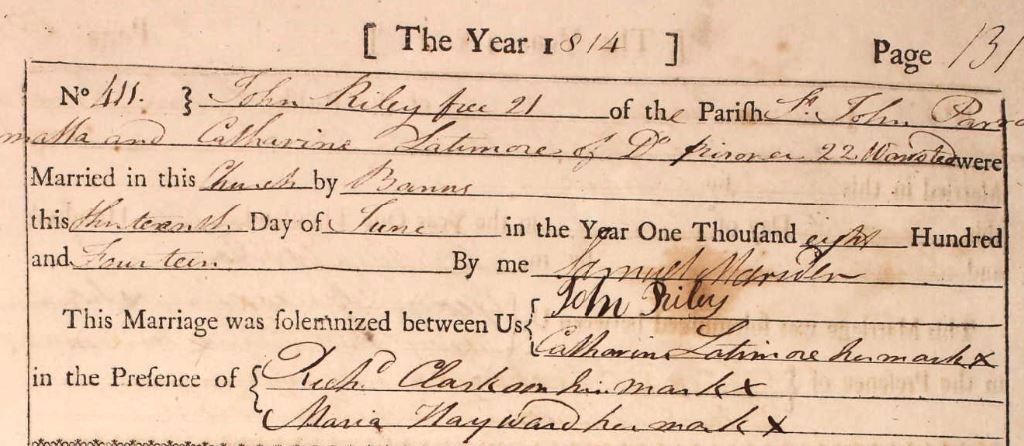 [ The Year 1814 ] Page 131
No 411. } John Riley free 21 of the Parish St. John Parra
matta and Catharine Latimore of Do prisoner 22 Wansted were
Married in this Church by Banns
this thirteenth Day of June in the Year One Thousand eight Hundred
and Fourteen By me Samuel Marsden
This Marriage was solemnized between Us { John Riley
Catharine Latimore her mark X
in the Presence of { Richd Clarkson his mark X
Maria Hayward her mark X